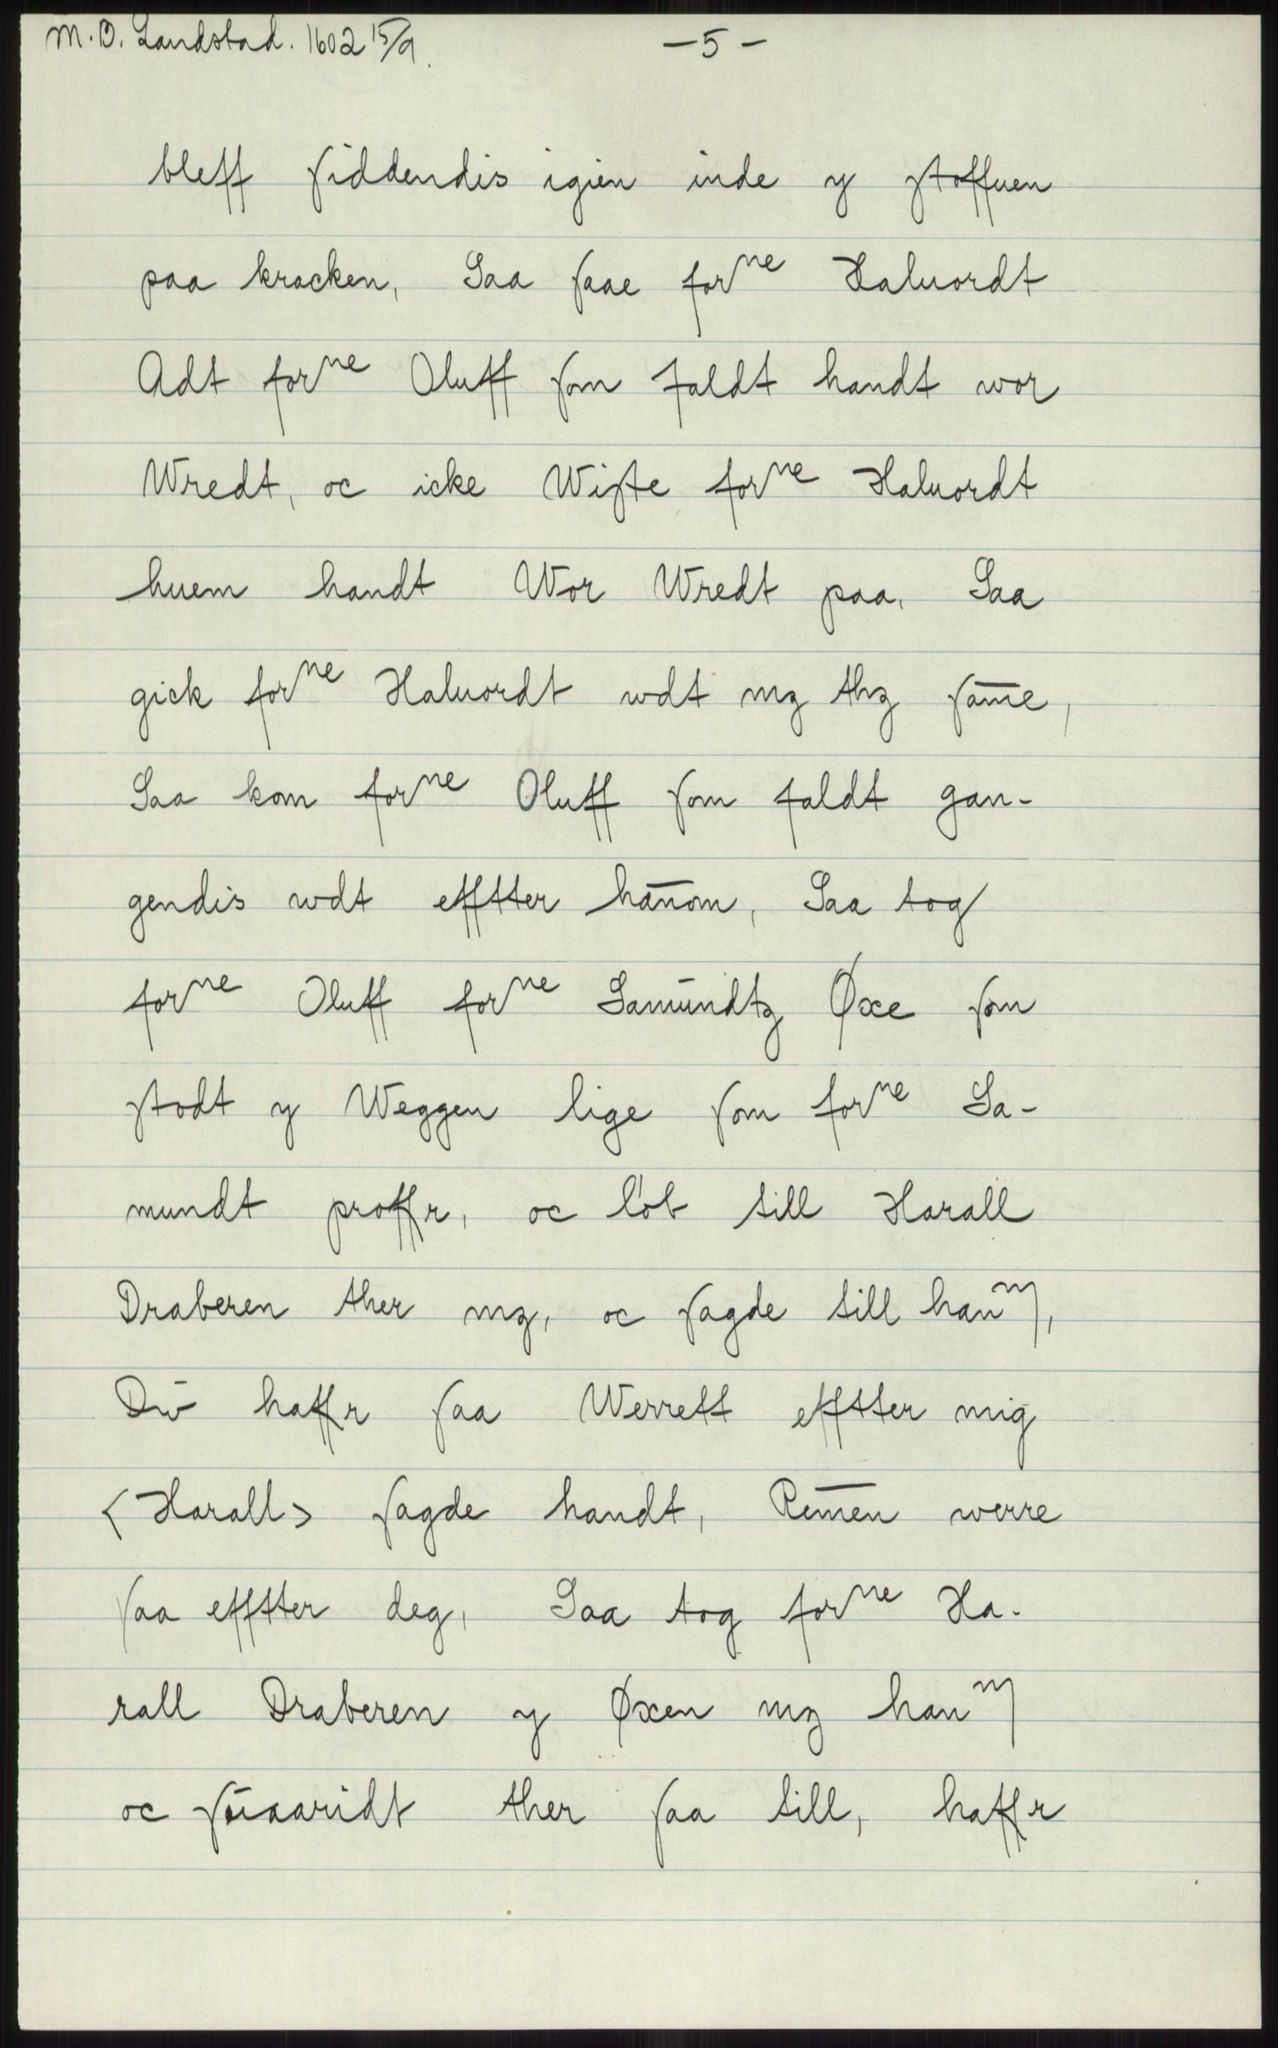 M.B. Landstad. 1602 15/9.
— 5 —
bleff siddendis igien inde y stoffuen
paa kracken, Saa saae forne Haluordt
Adt forne Oluff som faldt handt wor
Wredt, oc icke Wiste forne Haluordt
huem handt Wor Wredt paa, Saa
gick forne Haluordt wdt mz thz sam̄e,
Saa kom forne Oluff som faldt gan-
gendis wdt effter han̄om, Saa tog
forne Oluff forne Samūndtz Øxe som
stodt y Weggen lige som forne Sa-
mundt proffr, oc löb till Harall
Draberen ther mz, oc sagde till hanm,
Dw haffr saa Werrett effter mig
<Harall> sagde handt, Rem̄en werre
saa effter deg, Saa tog forne Ha-
rall Draberen y Øxen mz hanm
oc suaaridt ther saa till, haffr